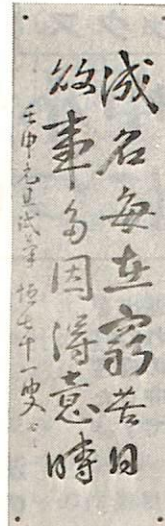 成名每在窮苦日
敗事多因得意時
壬申元旦試筆 恒七十一叟